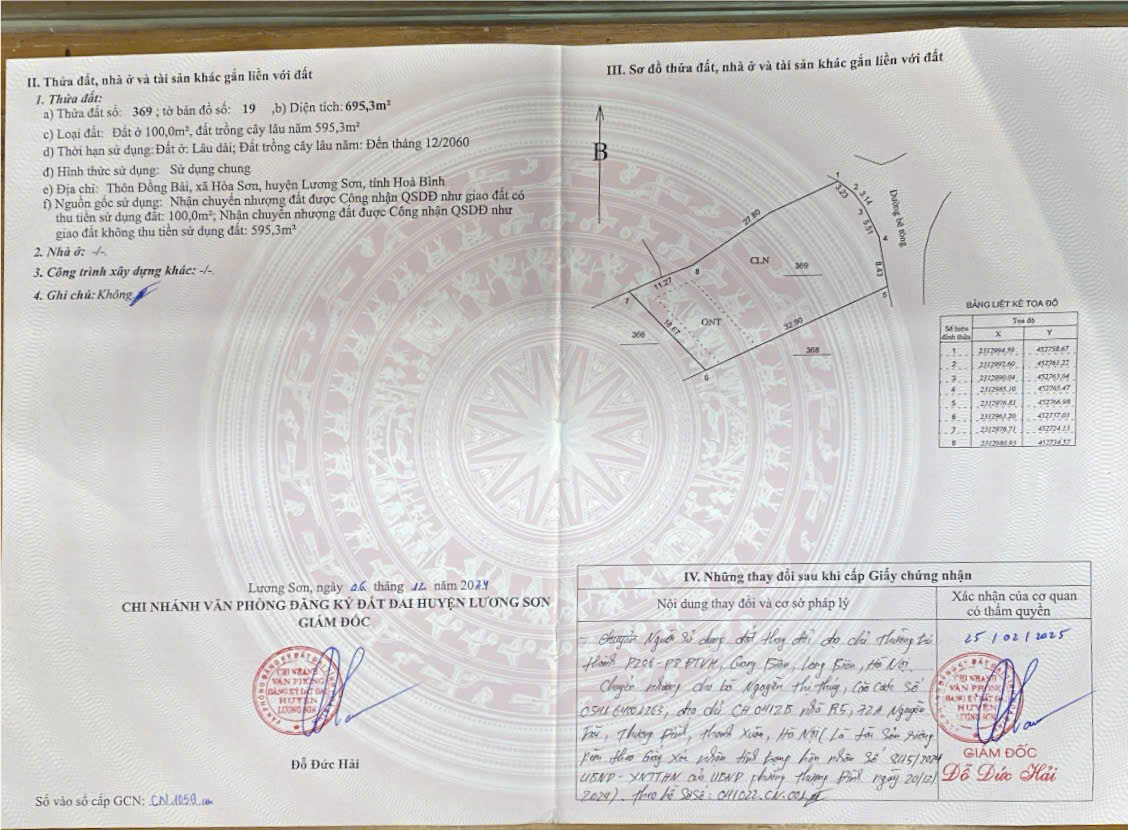 II. Thửa đất, nhà ở và tài sản khác gắn liền với đất
1. Thửa đất:
a) Thửa đất số: 369 ; tờ bản đồ số: 19 ,b) Diện tích: 695,3m²
c) Loại đất: Đất ở 100,0m², đất trồng cây lâu năm 595,3m²
d) Thời hạn sử dụng: Đất ở: Lâu dài; Đất trồng cây lâu năm: Đến tháng 12/2060
đ) Hình thức sử dụng: Sử dụng chung
e) Địa chỉ: Thôn Đồng Bài, xã Hòa Sơn, huyện Lương Sơn, tỉnh Hoà Bình
f) Nguồn gốc sử dụng: Nhận chuyển nhượng đất được Công nhận QSDĐ như giao đất có
thu tiền sử dụng đất: 100,0m²; Nhận chuyển nhượng đất được Công nhận QSDĐ như
giao đất không thu tiền sử dụng đất: 595,3m²
2. Nhà ở: -/-.
3. Công trình xây dựng khác: -/-.
4. Ghi chú: Không
Lương Sơn, ngày 06 tháng 12 năm 2024
CHI NHÁNH VĂN PHÒNG ĐĂNG KÝ ĐẤT ĐAI HUYỆN LƯƠNG SƠN
GIÁM ĐỐC
CHI NHÁNH
VĂN PHÒNG
ĐĂNG KÝ ĐẤT ĐAI
HUYỆN
LƯƠNG SƠN
Đỗ Đức Hải
Số vào sổ cấp GCN: CN 1059
III. Sơ đồ thửa đất, nhà ở và tài sản khác gắn liền với đất
B
1
2
3
4
5
6
7
8
3.23
3.14
5.51
8.43
27.80
11.27
18.67
32.90
Đường bê tông
CLN
369
ONT
366
368
BẢNG LIỆT KÊ TỌA ĐỘ
Số hiệu đỉnh thửa Tọa độ
X Y
1 2312994.59 452758.67
2 2312992.60 452761.22
3 2312990.04 452763.04
4 2312985.10 452765.47
5 2312976.81 452766.98
6 2312963.20 452737.03
7 2312976.71 452724.13
8 2312980.93 452734.57
IV. Những thay đổi sau khi cấp Giấy chứng nhận
Nội dung thay đổi và cơ sở pháp lý
Xác nhận của cơ quan
có thẩm quyền
Chuyển Người sử dụng đất thay đổi địa chỉ thường trú
thành P206-P8 ĐTVH, Giang Biên, Long Biên, Hà Nội.
Chuyển nhượng cho bà Nguyễn Thị Thúy, Căn cước số
địa chỉ CH 0412B nhà R5, 72A Nguyễn
Trãi, Thượng Đình, Thanh Xuân, Hà Nội (Là tài sản riêng
theo Giấy xác nhận tình trạng hôn nhân số 845/2024
UBND-XNTTHN của UBND phường Thượng Đình ngày 20/12/
2024). Theo hồ sơ số: 041022.CN.001
25/02/2025
CHI NHÁNH
VĂN PHÒNG
ĐĂNG KÝ ĐẤT ĐAI
HUYỆN
LƯƠNG SƠN
GIÁM ĐỐC
Đỗ Đức Hải